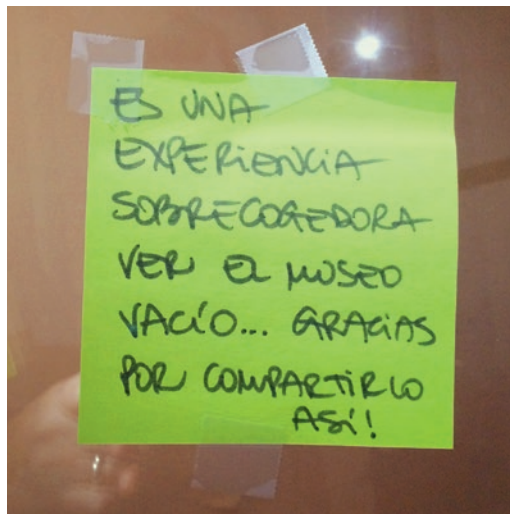 ES UNA
EXPERIENCIA
SOBRECOGEDORA
VER EL MUSEO
VACÍO... GRACIAS
POR COMPARTIRLO
ASÍ!